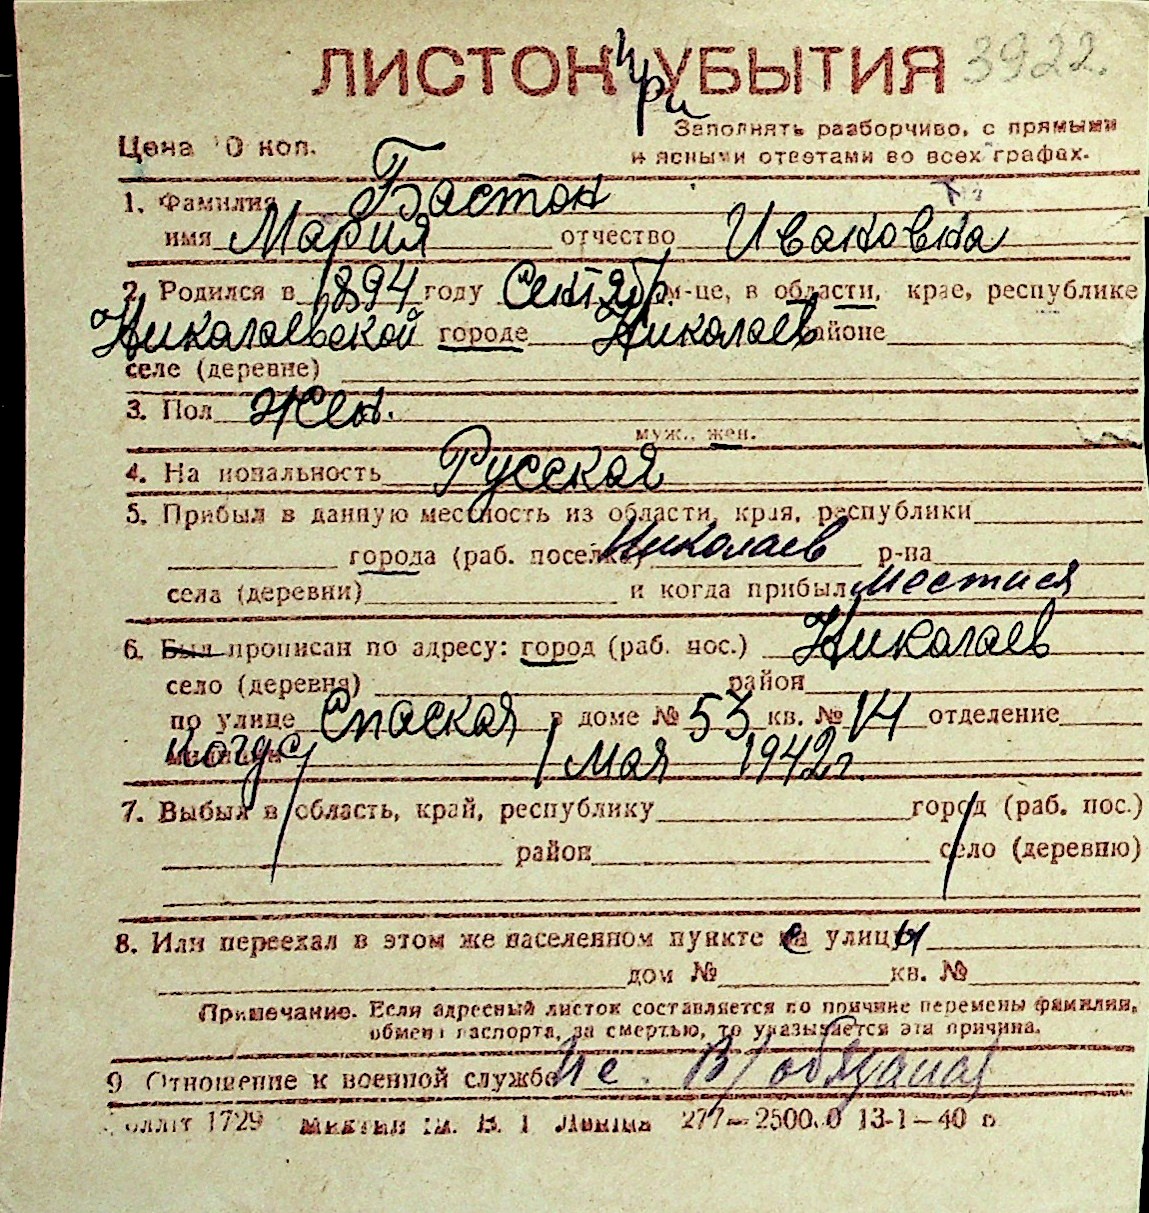 ЛИСТОК при УБЫТИЯ 3922.
Цена 10 коп.
Заполнять разборчиво, с прямыми
и ясными ответами во всех графах.
1. Фамилия Бастон
имя Мария отчество Ивановна
2. Родился в 1894 году Сентябр м-це, в области, крае, республике
Николаевской городе Николаев районе
селе (деревне)
3. Пол Жен.
муж., жен.
4. Национальность Русская
5. Прибыл в данную местность из области, края, республики
города (раб. поселка) Николаев р-на
села (деревни) и когда прибыл местная
6. Был прописан по адресу: город (раб. пос.) Николаев
село (деревня) район
по улице Спаская в доме № 53 кв. № 14 отделение
милиции когда 1 мая 1942 г.
7. Выбыл в область, край, республику город (раб. пос.)
район село (деревню)
8. Или переехал в этом же населенном пункте с улицы
дом № кв. №
Примечание. Если адресный листок составляется по причине перемены фамилии,
обмена паспорта, за смертью, то указывается эта причина.
9 Отношение к военной службе Не. В/обязаная
1729 277—2500.0 13-1—40 в